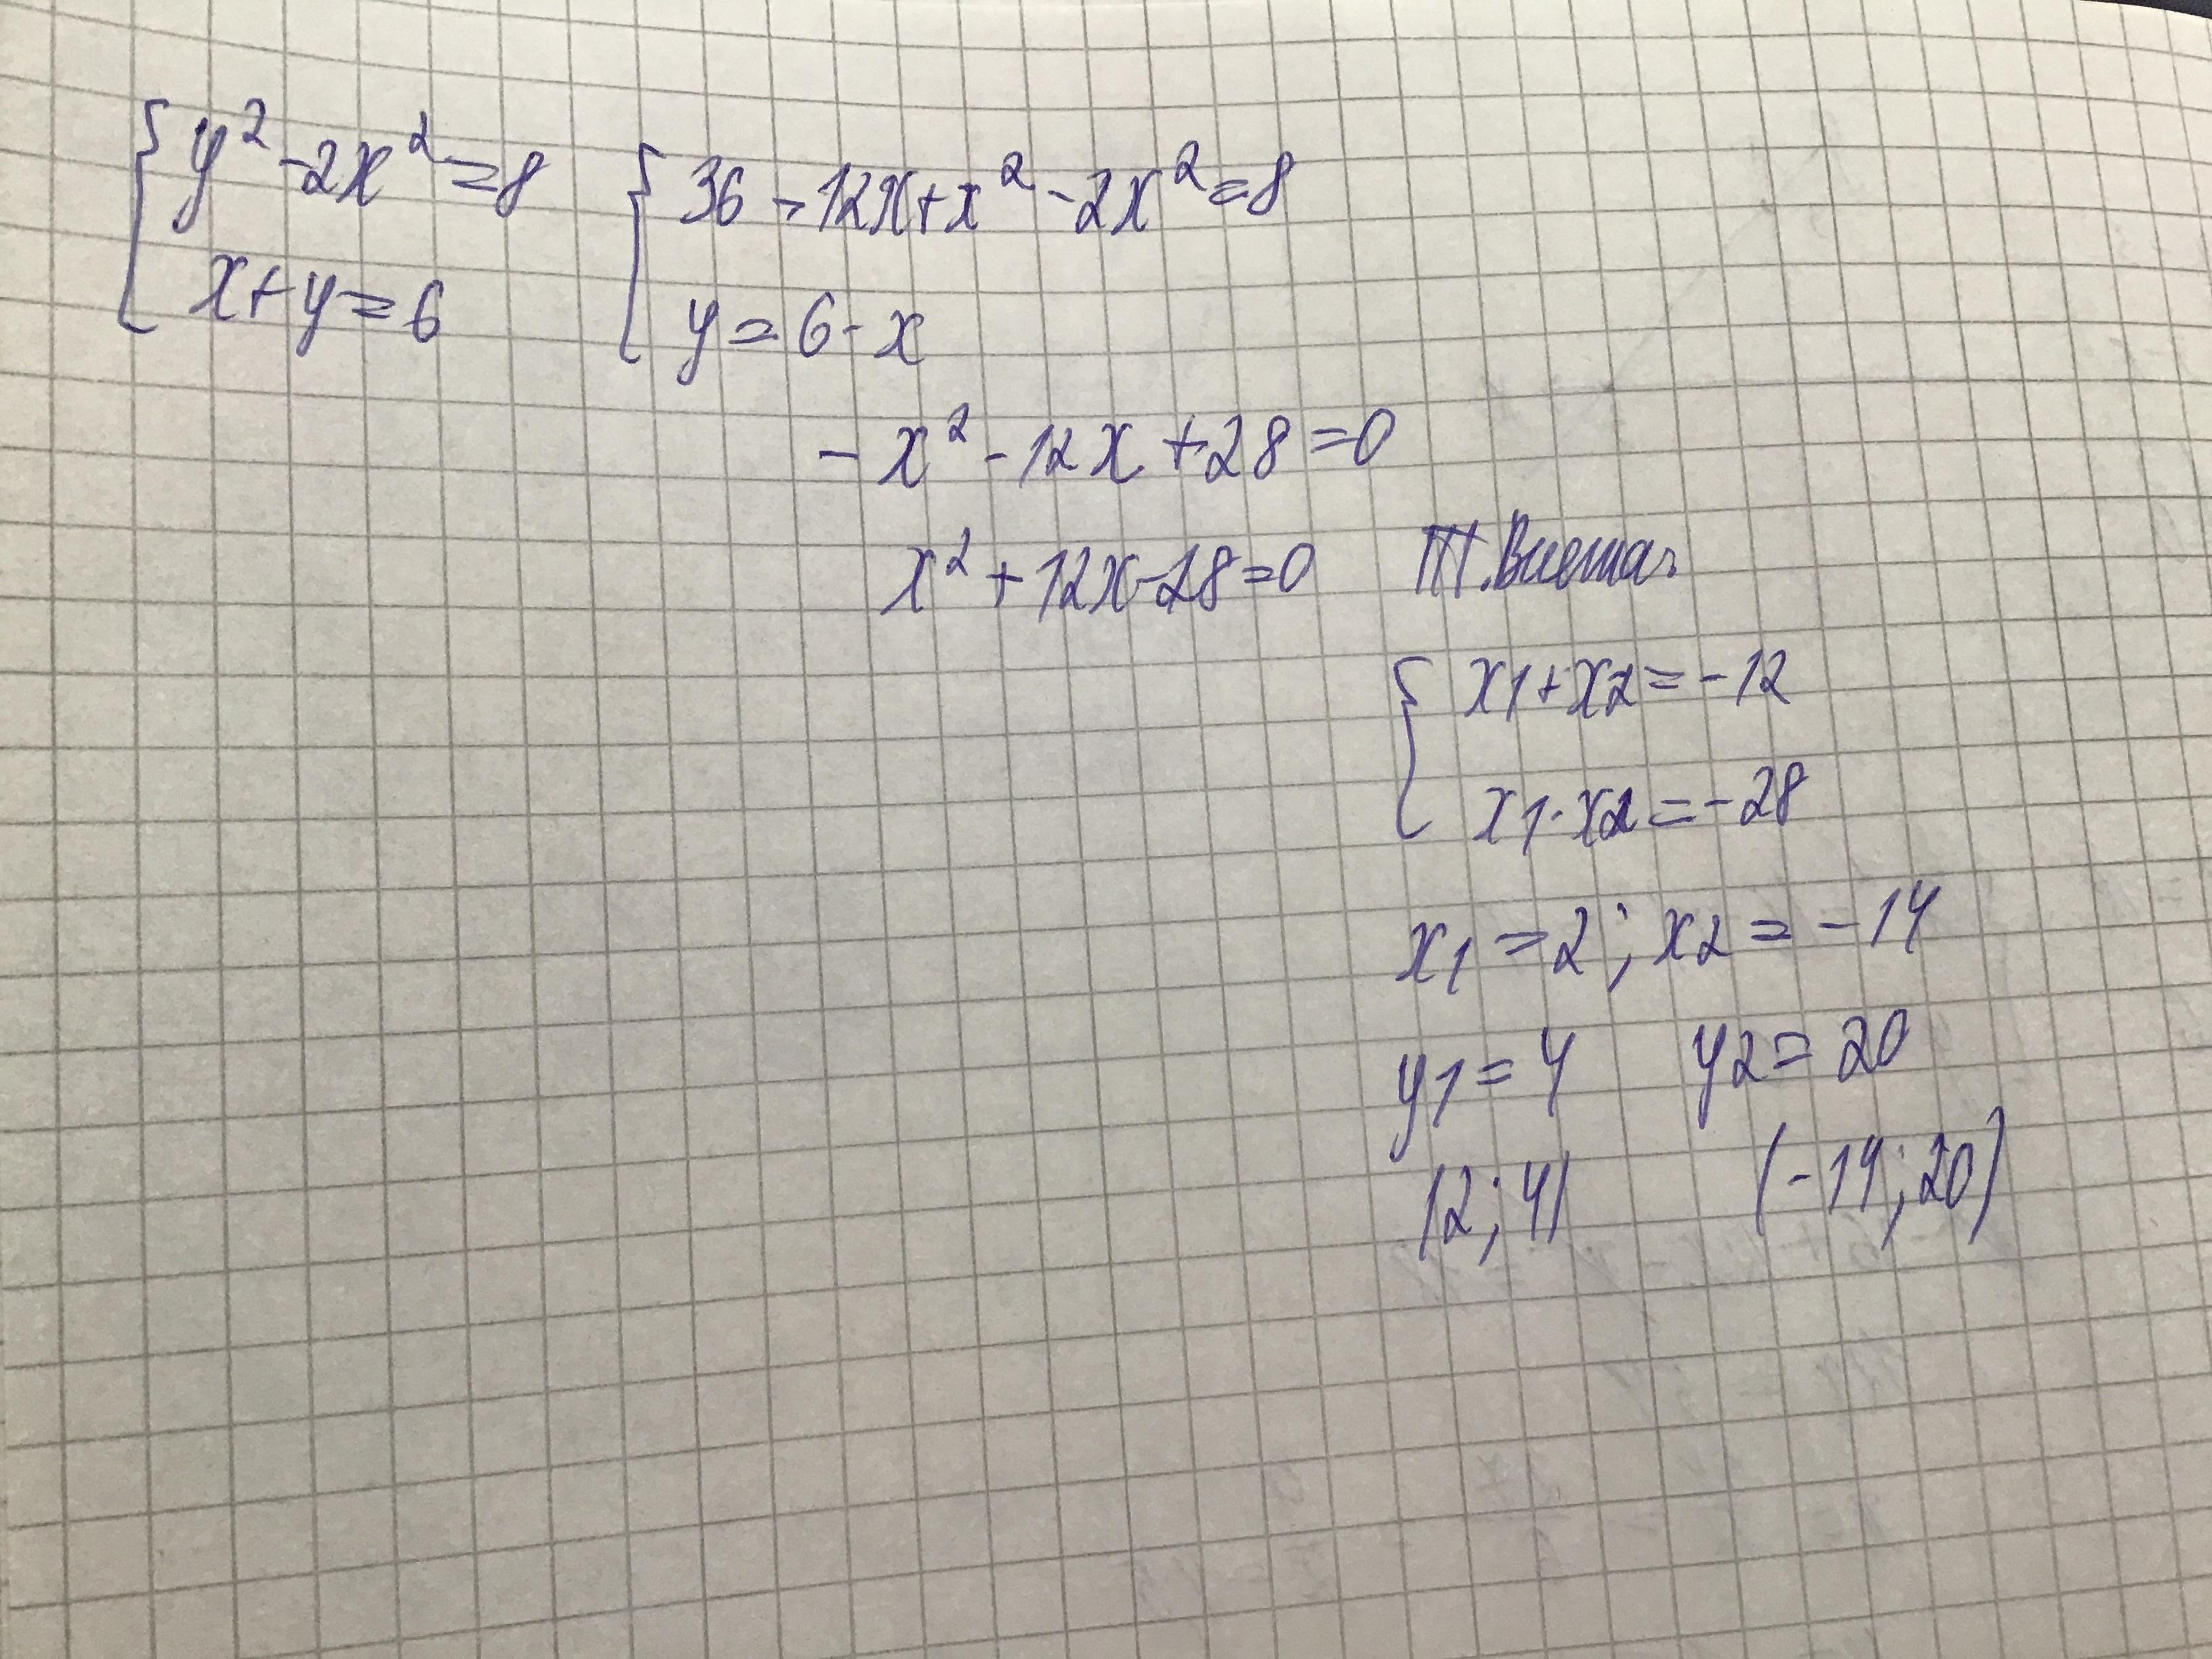 { y² - 2x² = 8
x + y = 6
{ 36 - 12x + x² - 2x² = 8
y = 6 - x
- x² - 12x + 28 = 0
x² + 12x - 28 = 0 Т. Виета.
{ x1 + x2 = -12
x1 · x2 = -28
x1 = 2; x2 = -14
y1 = 4 y2 = 20
(2; 4) (-14; 20)